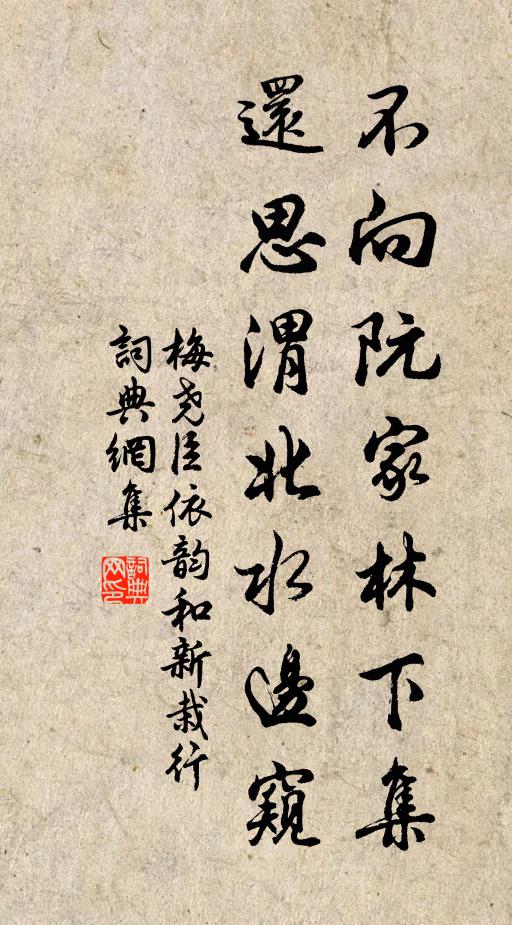 不向阮家林下集
還思渭北水邊窺
梅堯臣依韵和新栽行
詞典網集
詞典网印